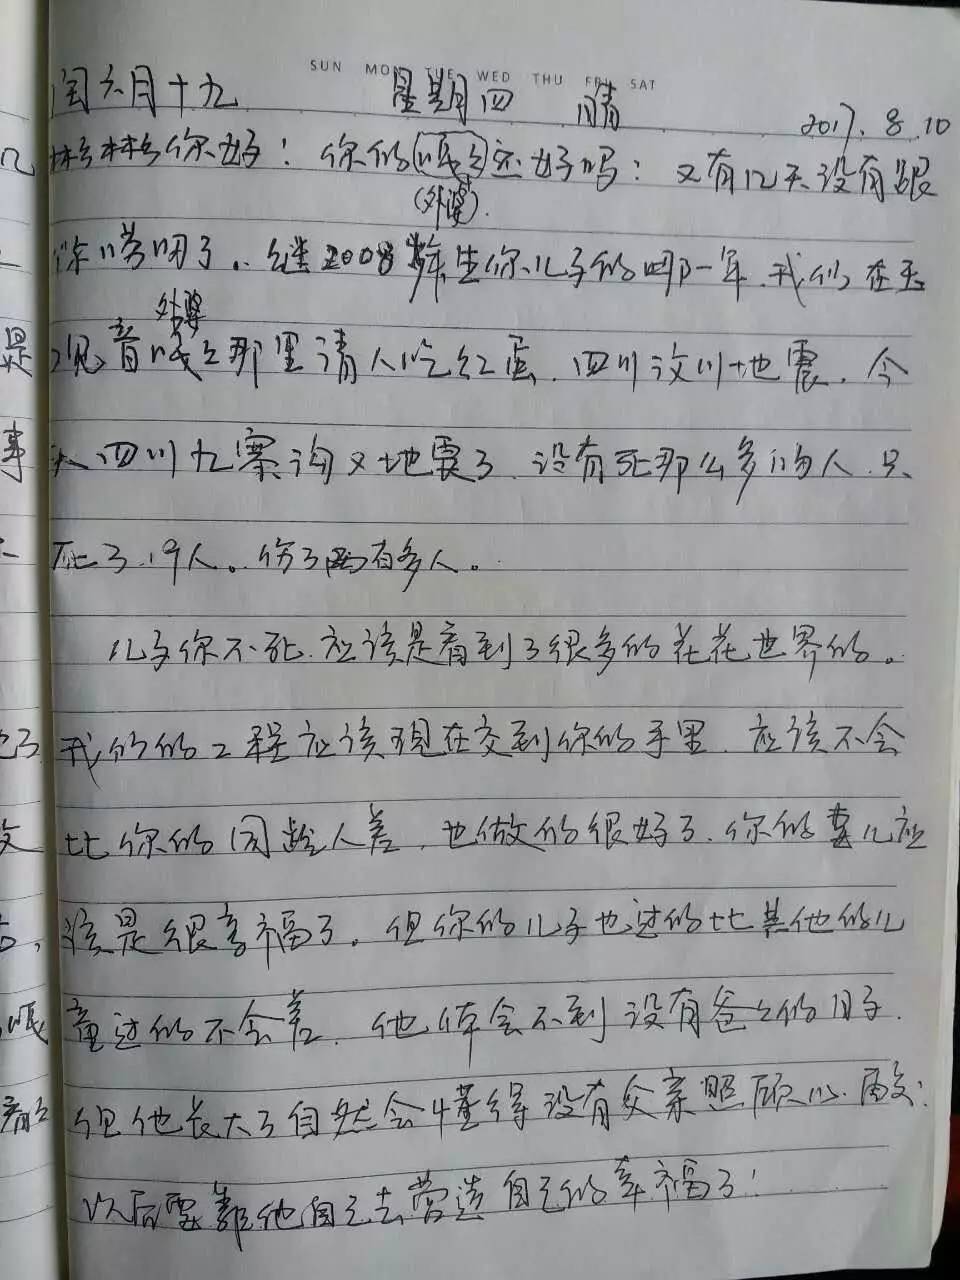 SUN MON TUE WED THU FRI SAT
闰六月十九 星期四 晴 2017.8.10
彬彬你好！你的嘎々还好吗：又有12天没有跟
(外婆).
你唠叨了。继2008年生你儿子的那一年.我们在玉
外婆
观音嘎々那里请人吃红蛋.四川汶川地震.今
天四川九寨沟又地震了.没有死那么多的人.只
死了19人。伤了两百多人。
儿子你不死.应该是看到了很多的花花世界的。
我的的工程应该现在交到你的手里.应该不会
比你的同龄人差.也做的很好了.你的妻儿应
该是很幸福了。但你的儿子也过的比其他的儿
童过的不会差.他体会不到没有爸々的日子.
但他长大了自然会懂得没有父亲照顾的.
以后要靠他自己去营造自己的幸福了！
是
事